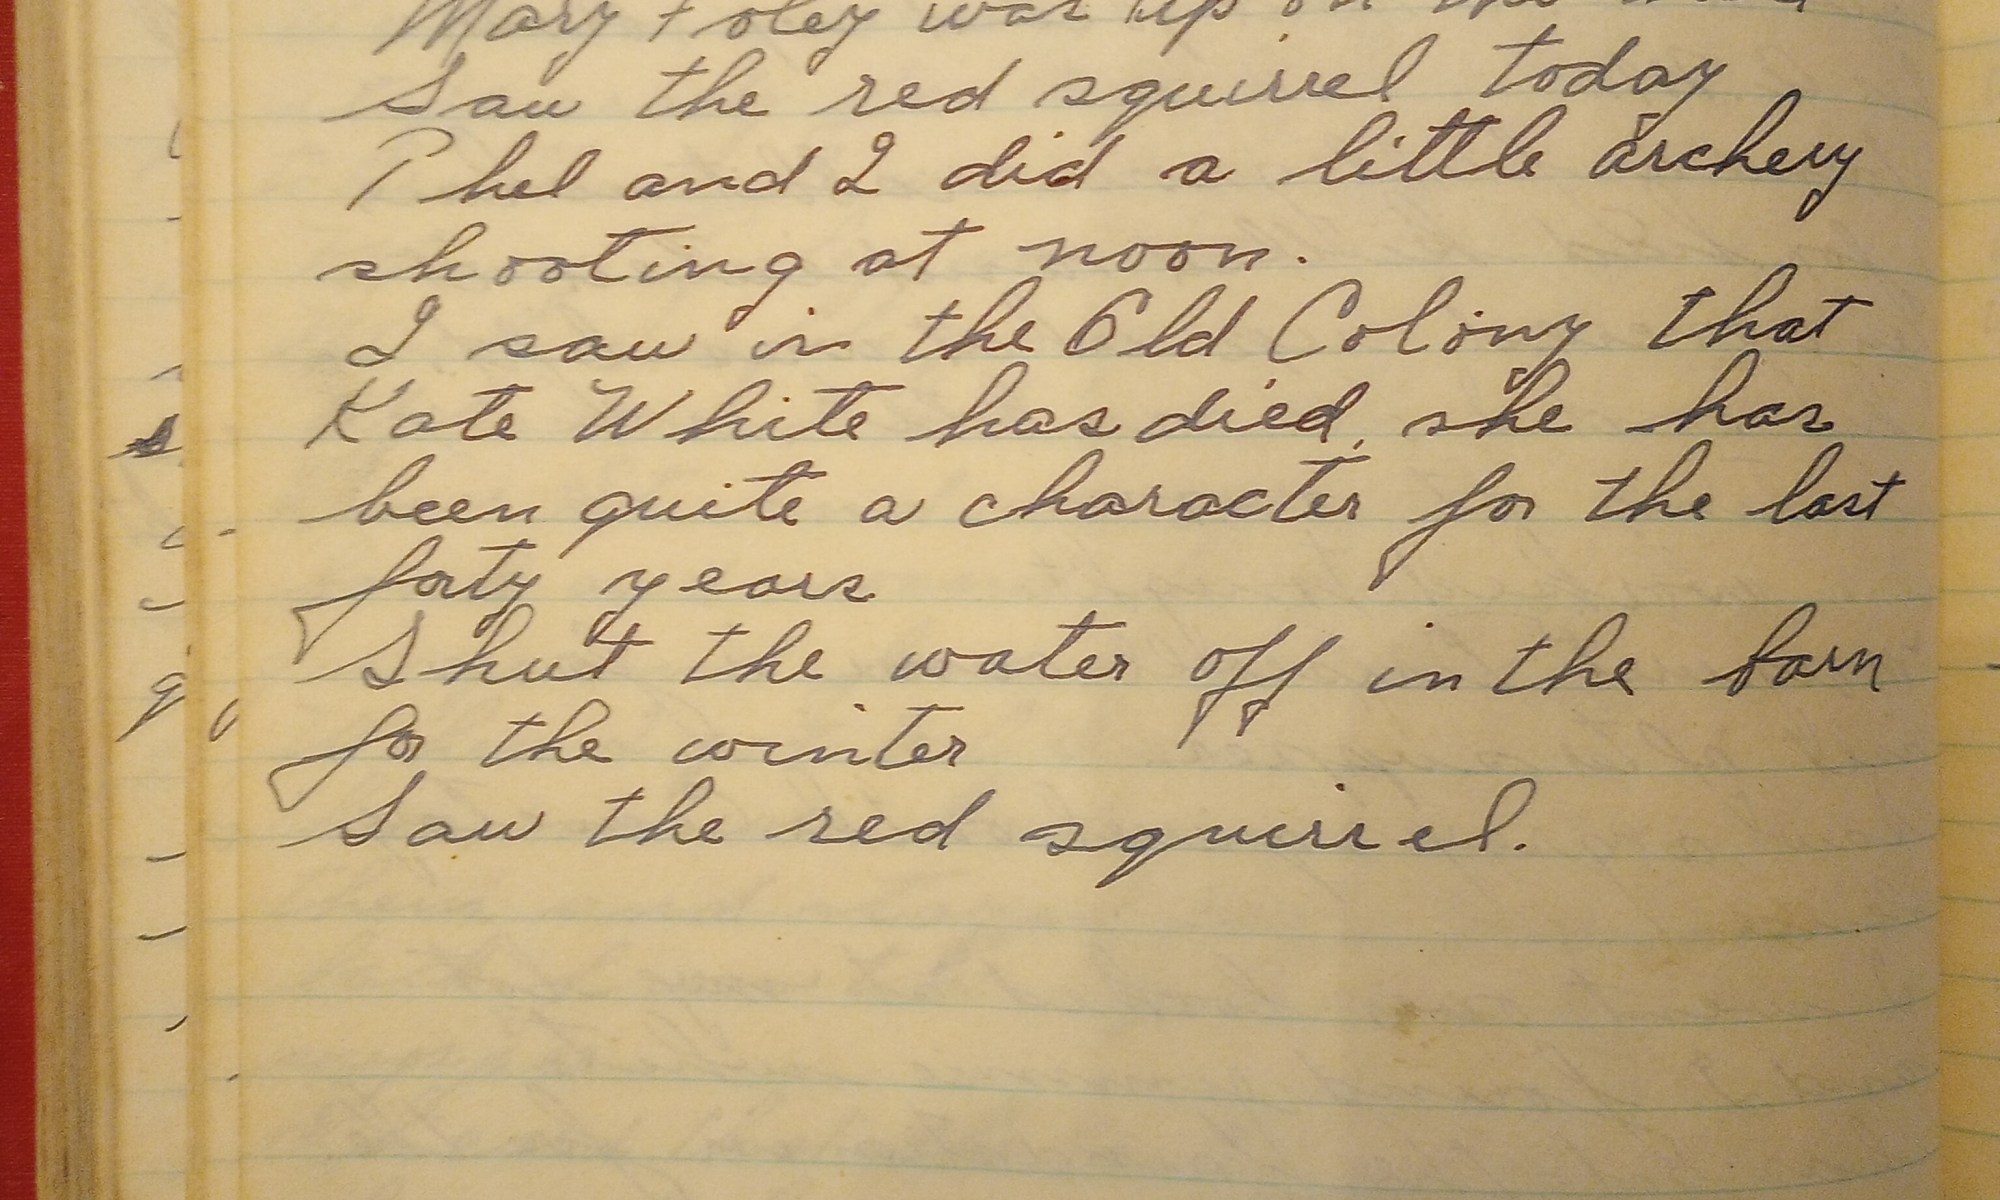 Mary Foley was up on the
Saw the red squirrel today
Phel and I did a little archery
shooting at noon.
I saw in the Old Colony that
Kate White has died, she has
been quite a character for the last
forty years
Shut the water off in the barn
for the winter
Saw the red squirrel.